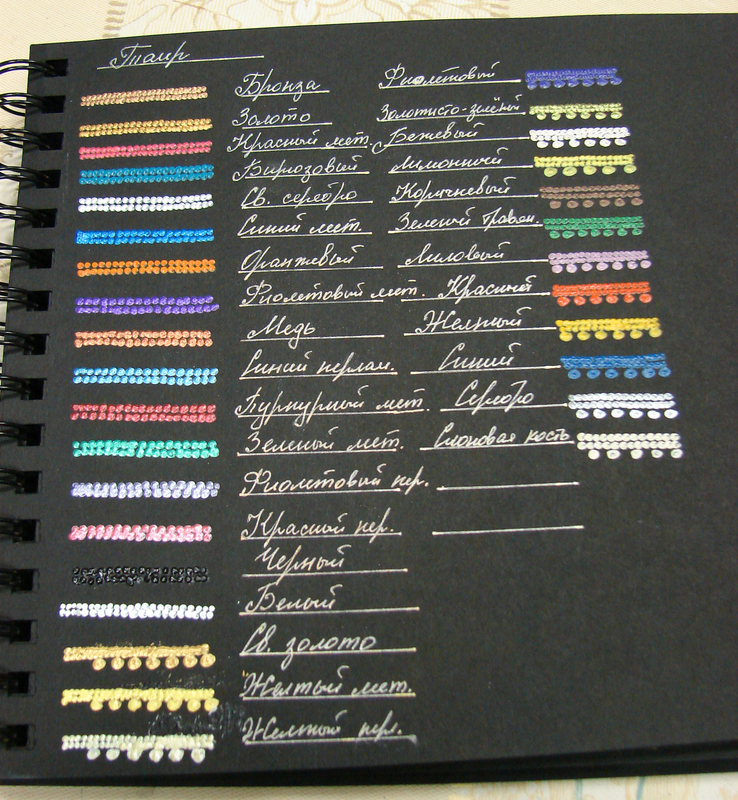 Таир
Бронза Фиолетовый
Золото Золотисто-зелёный
Красный мет. Бежевый
Бирюзовый Лимонный
Св. серебро Коричневый
Синий мет. Зеленый травян.
Оранжевый Лиловый
Фиолетовый мет. Красный
Медь Желтый
Синий перлам. Синий
Пурпурный мет. Серебро
Зеленый мет. Слоновая кость
Фиолетовый пер.
Красный пер.
Черный
Белый
Св. золото
Желтый мет.
Желтый пер.